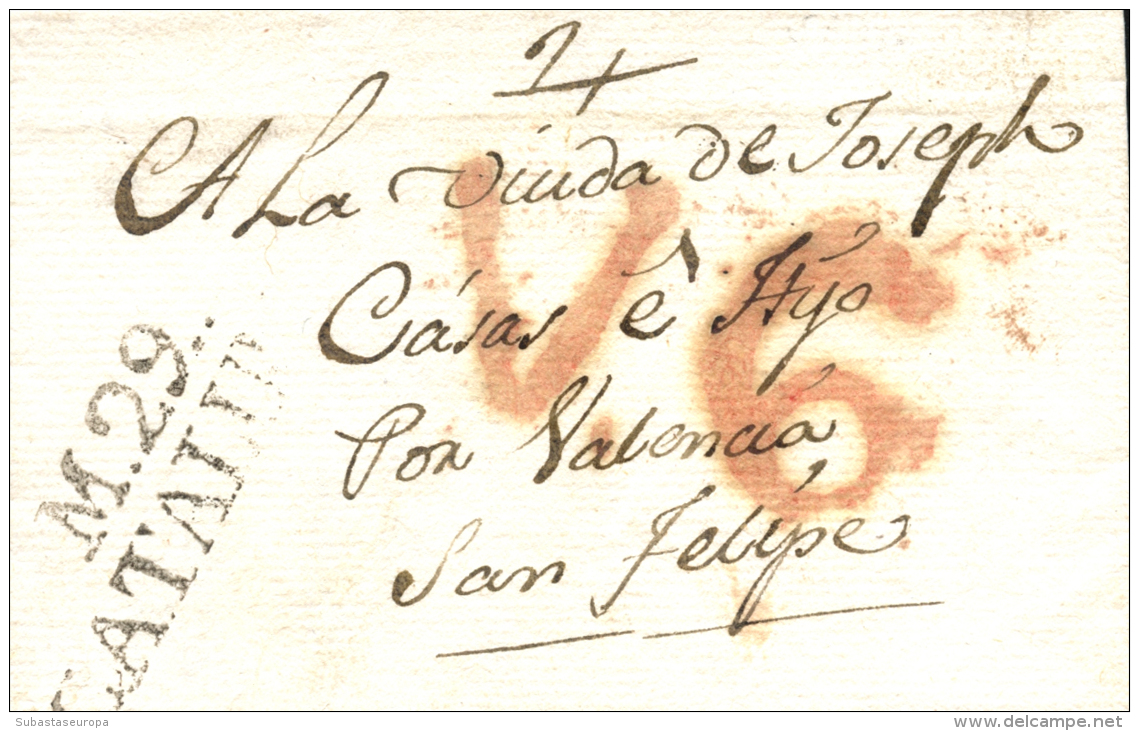 A La viuda de Joseph
Cásas é Hijo
Por Valencia
San Felipe
M.29.
CATALU
V.6
Subastaseuropa
delcampe.net